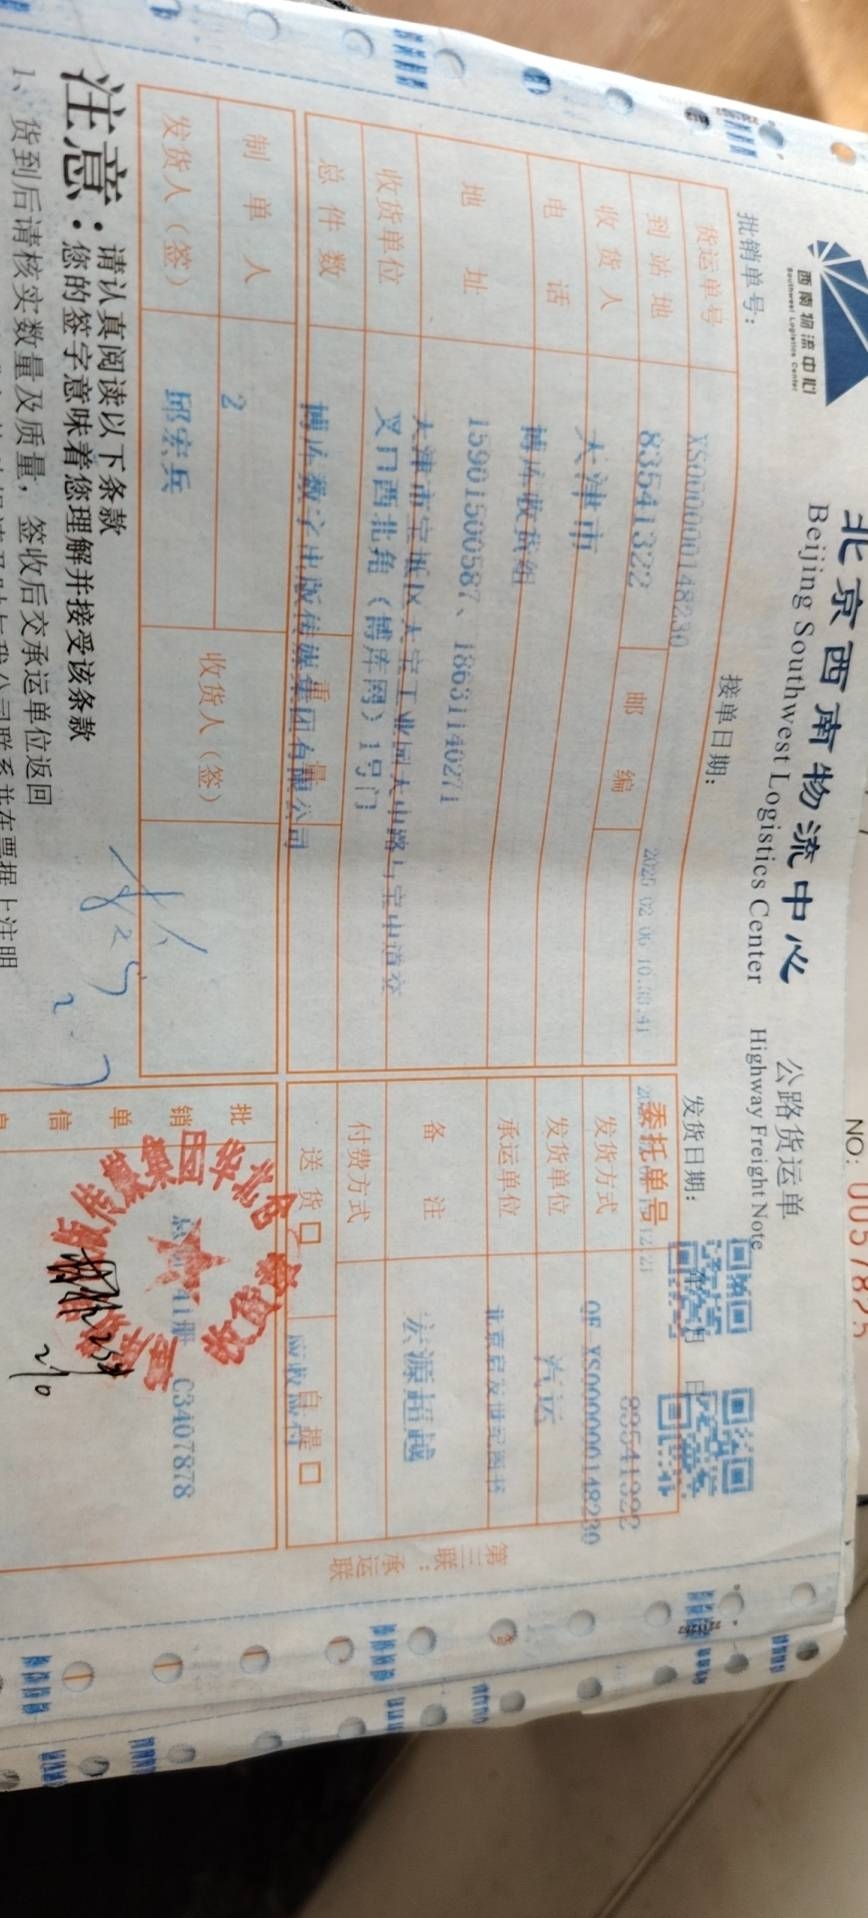 西南物流中心
Southwest Logistics Center
北京西南物流中心 公路货运单
Beijing Southwest Logistics Center Highway Freight Note
NO: 0057825
批销单号: XS0000000148230 接单日期: 2025 02 06 发货日期: 年 月 日
货运单号 83541322 邮编 委托单号 83541322
到站地 天津市 发货方式 QF-XS0000000148230
收货人 博库收货组 发货单位 汽运
电话 15901500587、18631140271 承运单位 北京启发世纪图书
地址 天津市宝坻区天宝工业园天山路与宝中道交叉口西北角(博库网)1号门 备注 宏源超越
收货单位 博库数字出版传媒集团有限公司 付费方式
总件数 2 重量 送货□ 自提□
制单人 邱宏兵
发货人(签) 收货人(签)
批销单信息 41册 C3407878
第三联:承运联
注意:请认真阅读以下条款
您的签字意味着您理解并接受该条款
1、货到后请核实数量及质量,签收后交承运单位返回